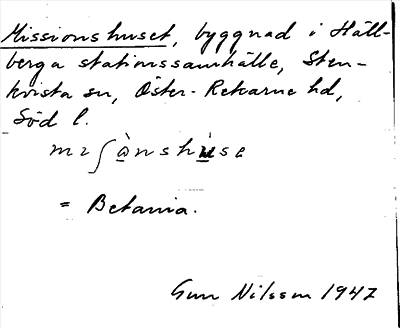 Missionshuset, byggnad i Häll-
berga stationssamhälle, Sten-
kvista sn, Öster-Rekarne hd,
Söd l.
mıʃὼnshùsɛ
= Betania.
Gun Nilsson 1947